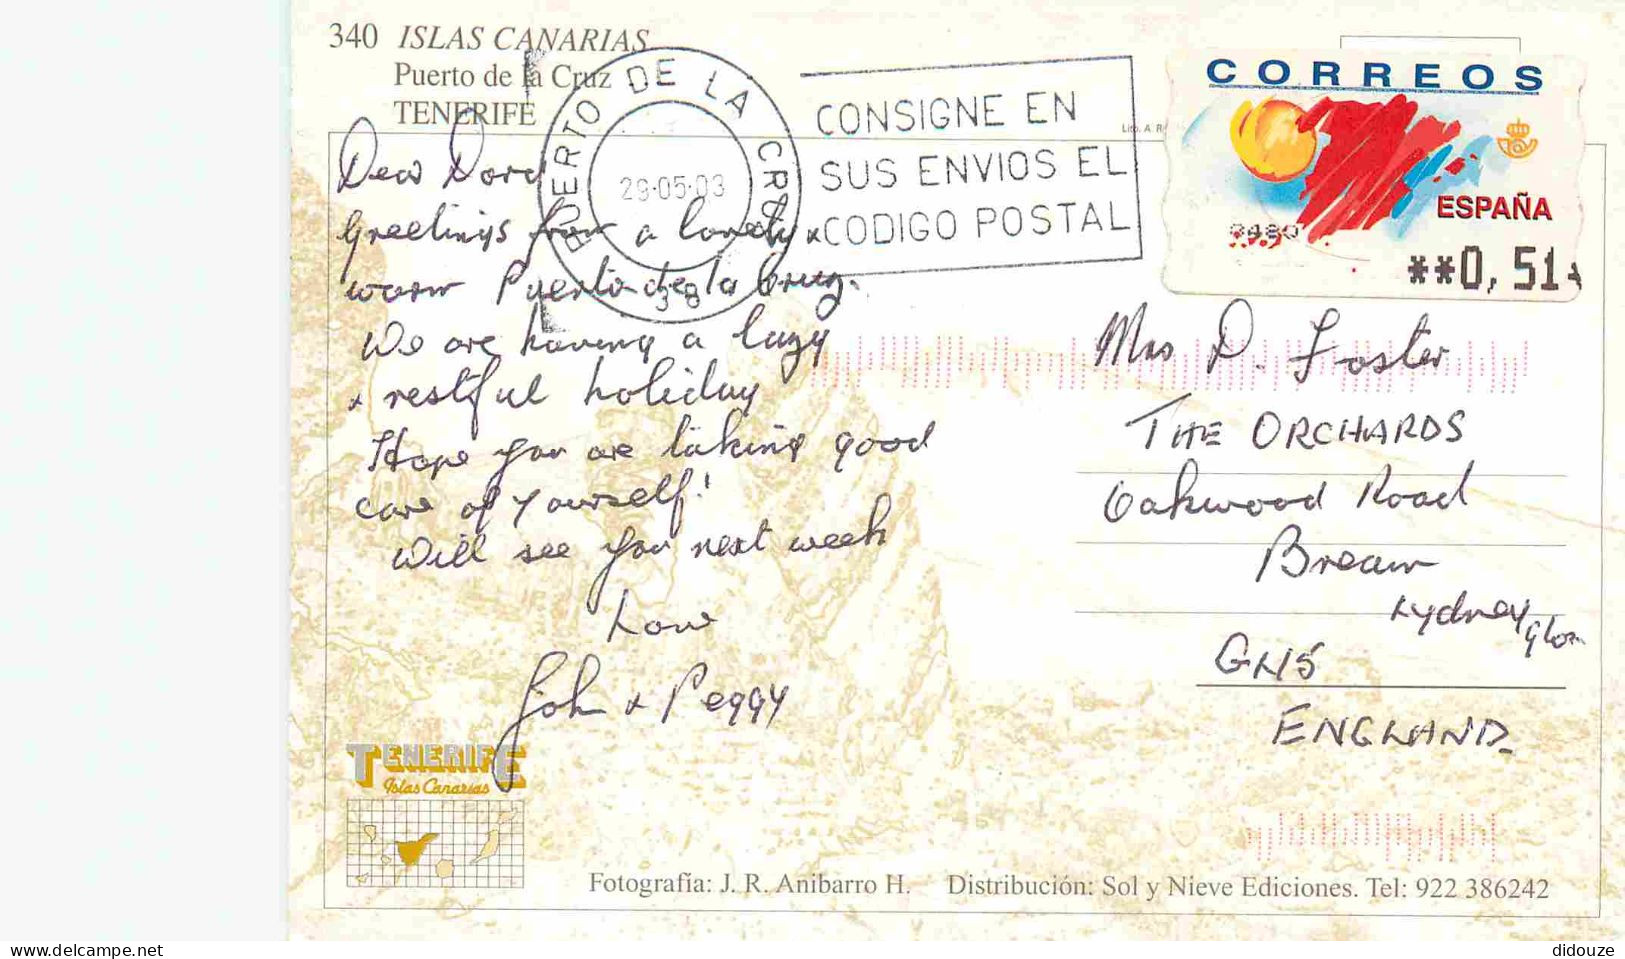 340 ISLAS CANARIAS
Puerto de la Cruz
TENERIFE
PUERTO DE LA CRUZ
29·05·03
38
CONSIGNE EN
SUS ENVIOS EL
CODIGO POSTAL
CORREOS
ESPAÑA
**0,51
Dear Dora
Greetings from a lovely &
warm Puerto de la Cruz.
We are having a lazy
& restful holiday
Hope you are taking good
care of yourself!
Will see you next week
Love
John & Peggy
Mrs D. Foster
THE ORCHARDS
Oakwood Road
Bream
Lydney Glos
GL15
ENGLAND
TENERIFE
Islas Canarias
Fotografía: J. R. Anibarro H. Distribución: Sol y Nieve Ediciones. Tel: 922 386242
www.delcampe.net
didouze